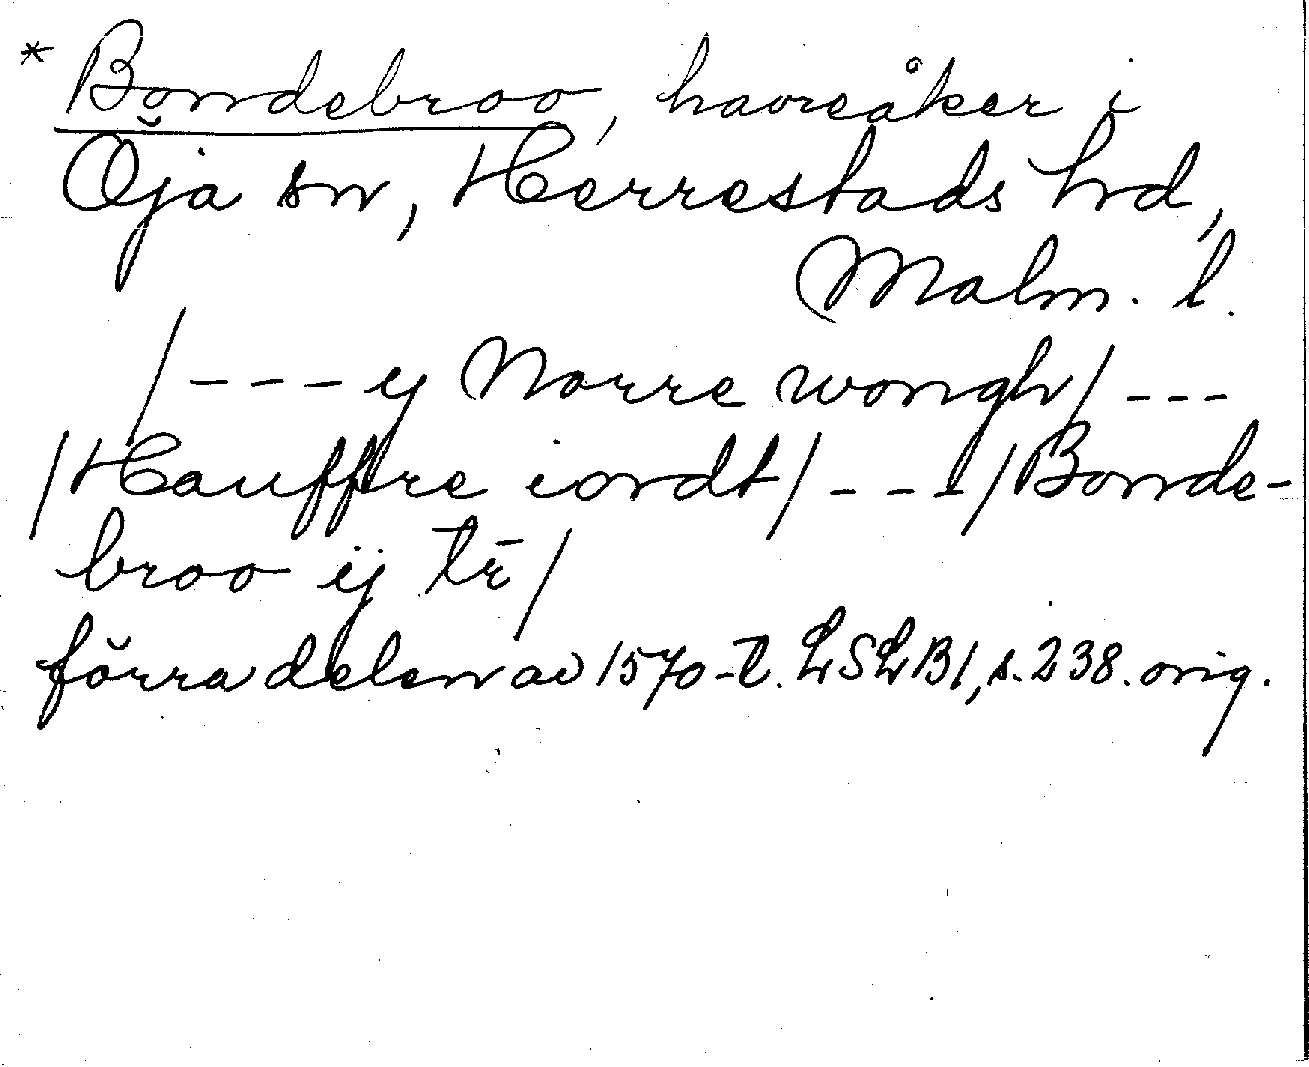 * Bondebroo, havreåker i
Öja sn, Herrestads hrd,
Malm. l.
/--- ij Norre wongh/ ---
/Hauffre iordt/ ---/Bonde-
broo ij tr̄/
förra delen av 1570-t. LSLB1, s. 238. orig.